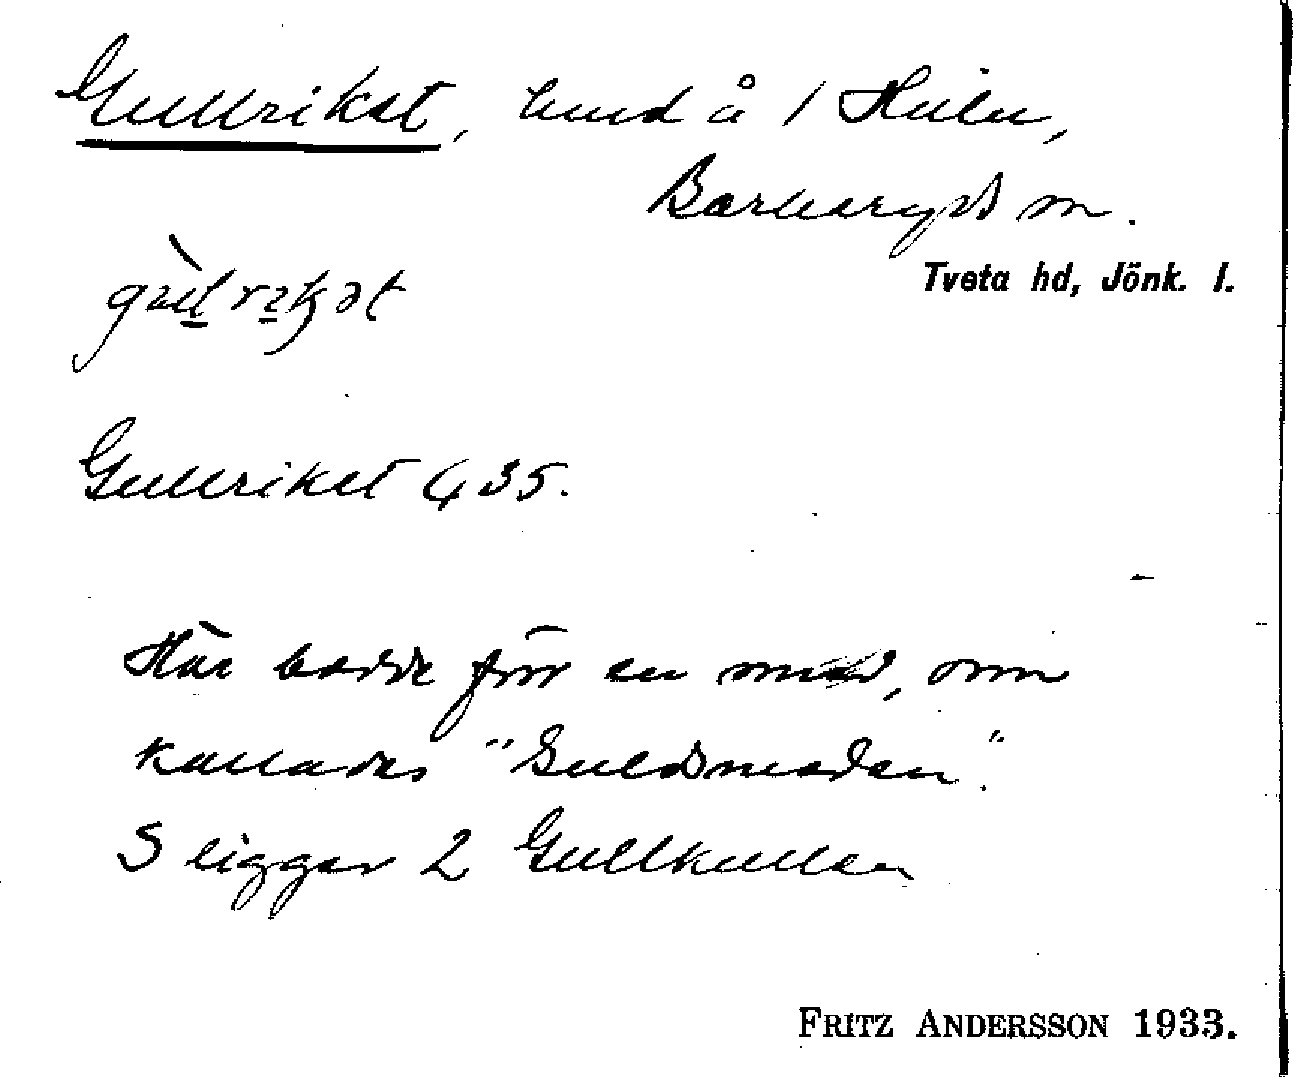 Gullriket, lund å 1 Hulu,
Barkeryds sn.
Tveta hd, Jönk. l.
Gullriket 435.
Här bodde förr en smed, som
kallades "Guldsmeden".
S ligger 2 Gullkullen
FRITZ ANDERSSON 1933.